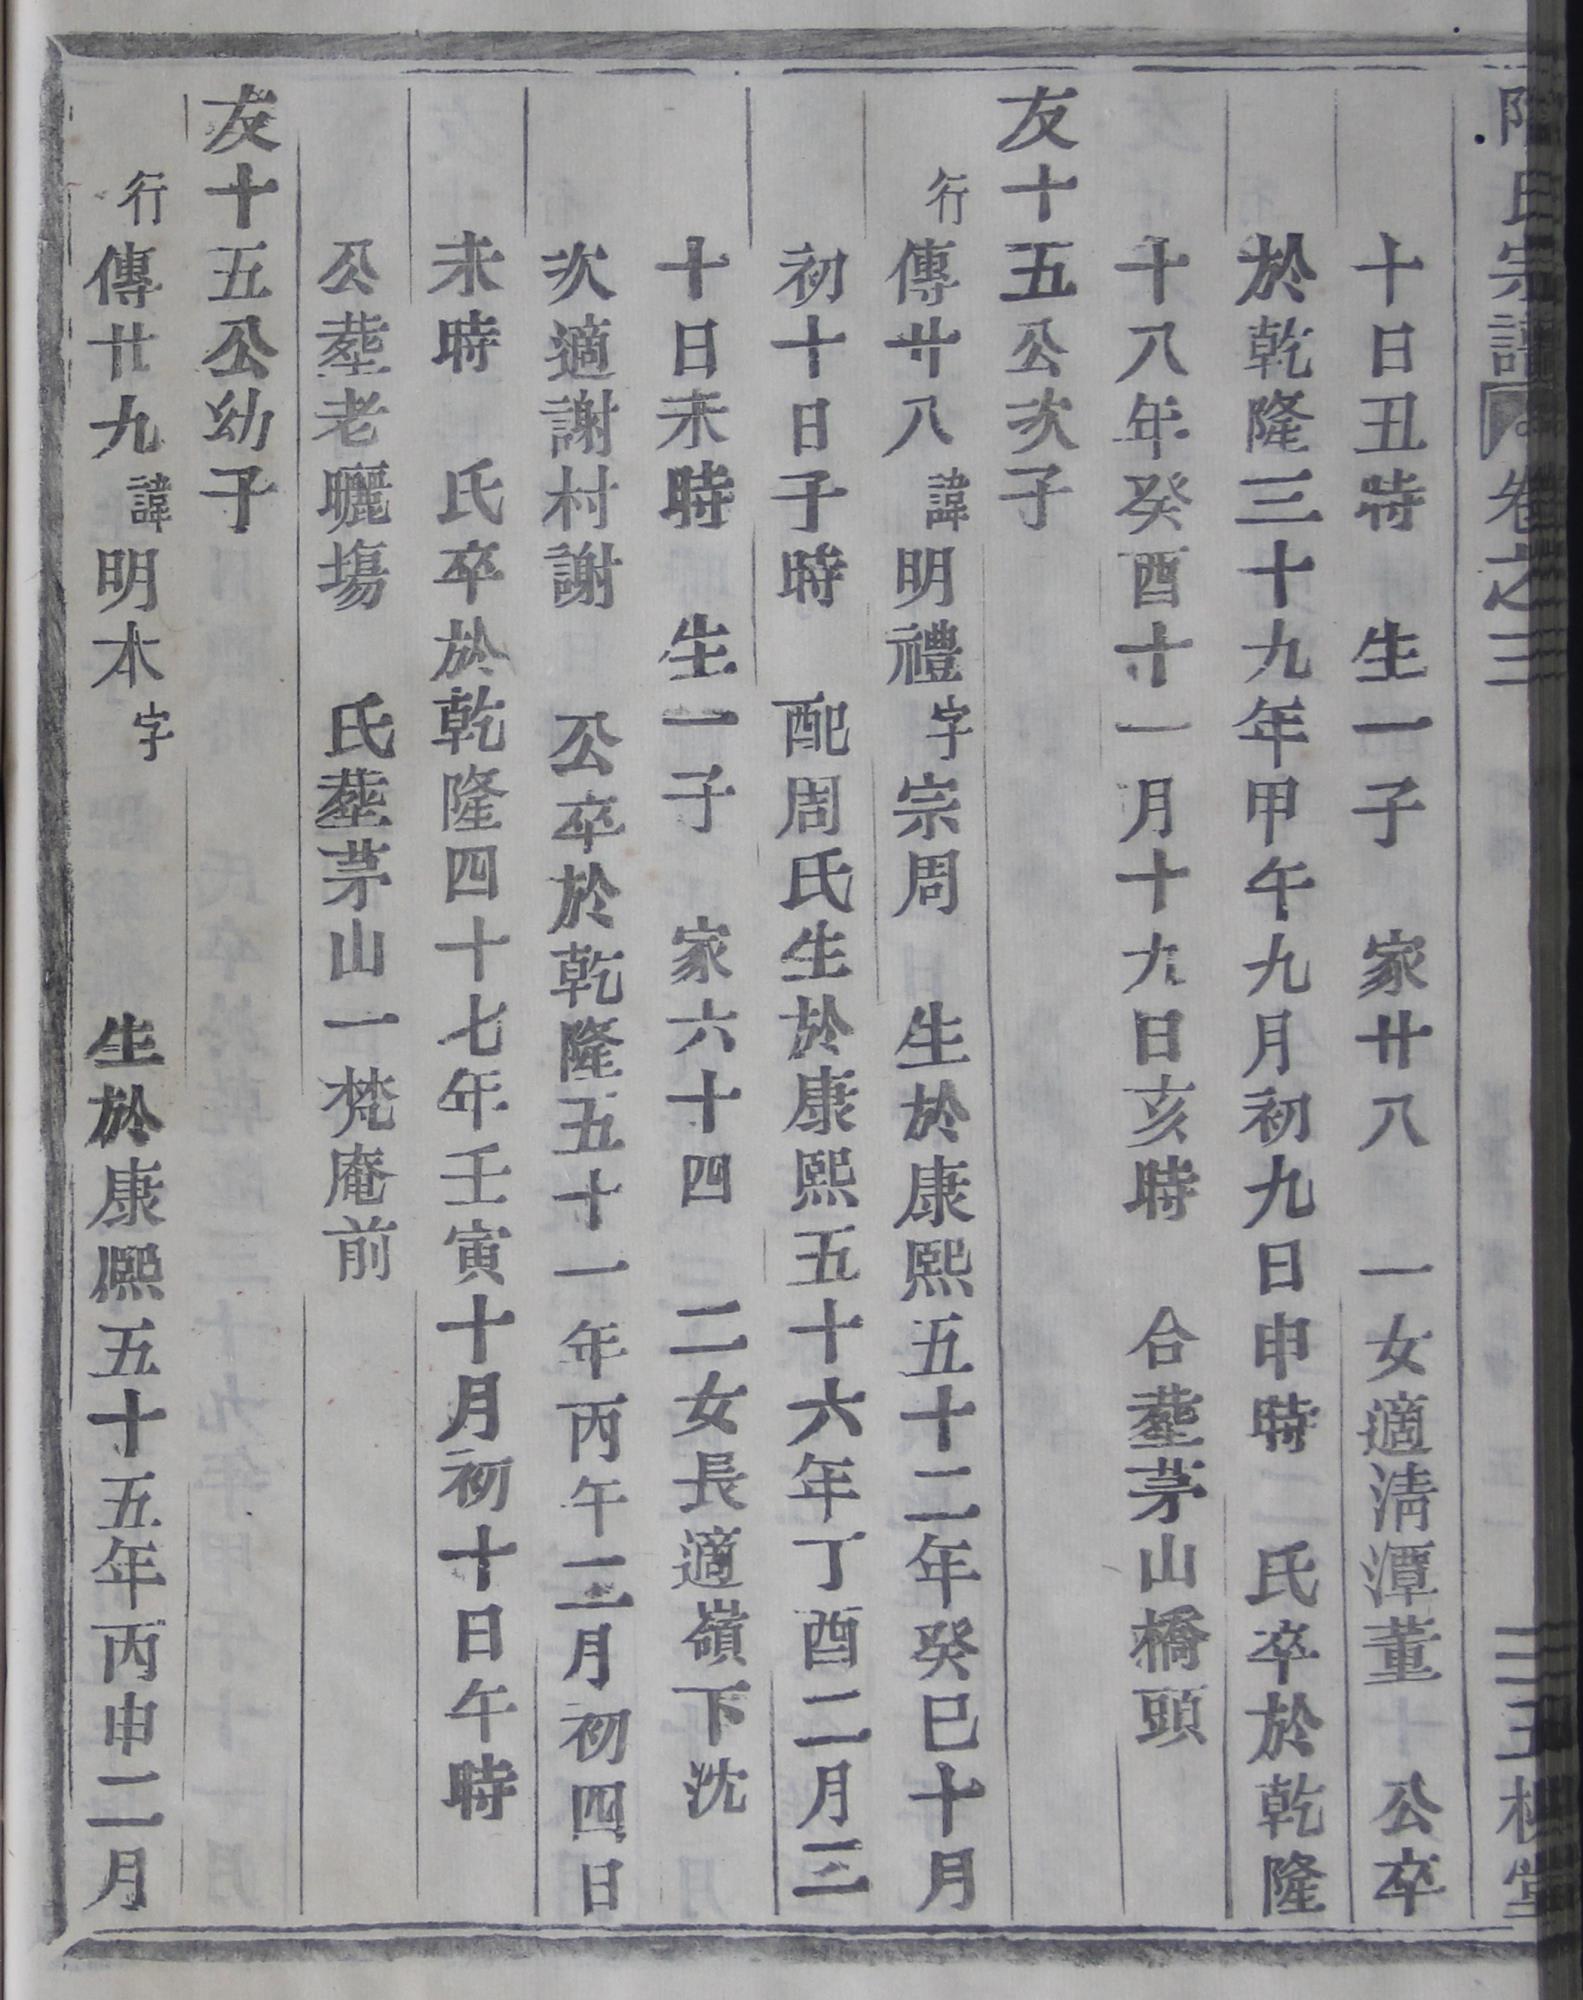 氏宗譜 卷之三
十日丑時 生一子 家廿八 一女適淸潭董 公卒
於乾隆三十九年甲午九月初九日申時 氏卒於乾隆
十八年癸酉十一月十九日亥時 合塟茅山橋頭
友十五公次子
行傳廿八諱明禮字宗周 生於康熙五十二年癸巳十月
初十日子時 配周氏生於康熙五十六年丁酉二月三
十日未時 生一子 家六十四 二女長適嶺下沈
次適謝村謝 公卒於乾隆五十一年丙午三月初四日
未時 氏卒於乾隆四十七年壬寅十月初十日午時
公塟老曬塲 氏塟茅山一梵庵前
友十五公幼子
行傳廿九諱明本字 生於康熙五十五年丙申二月